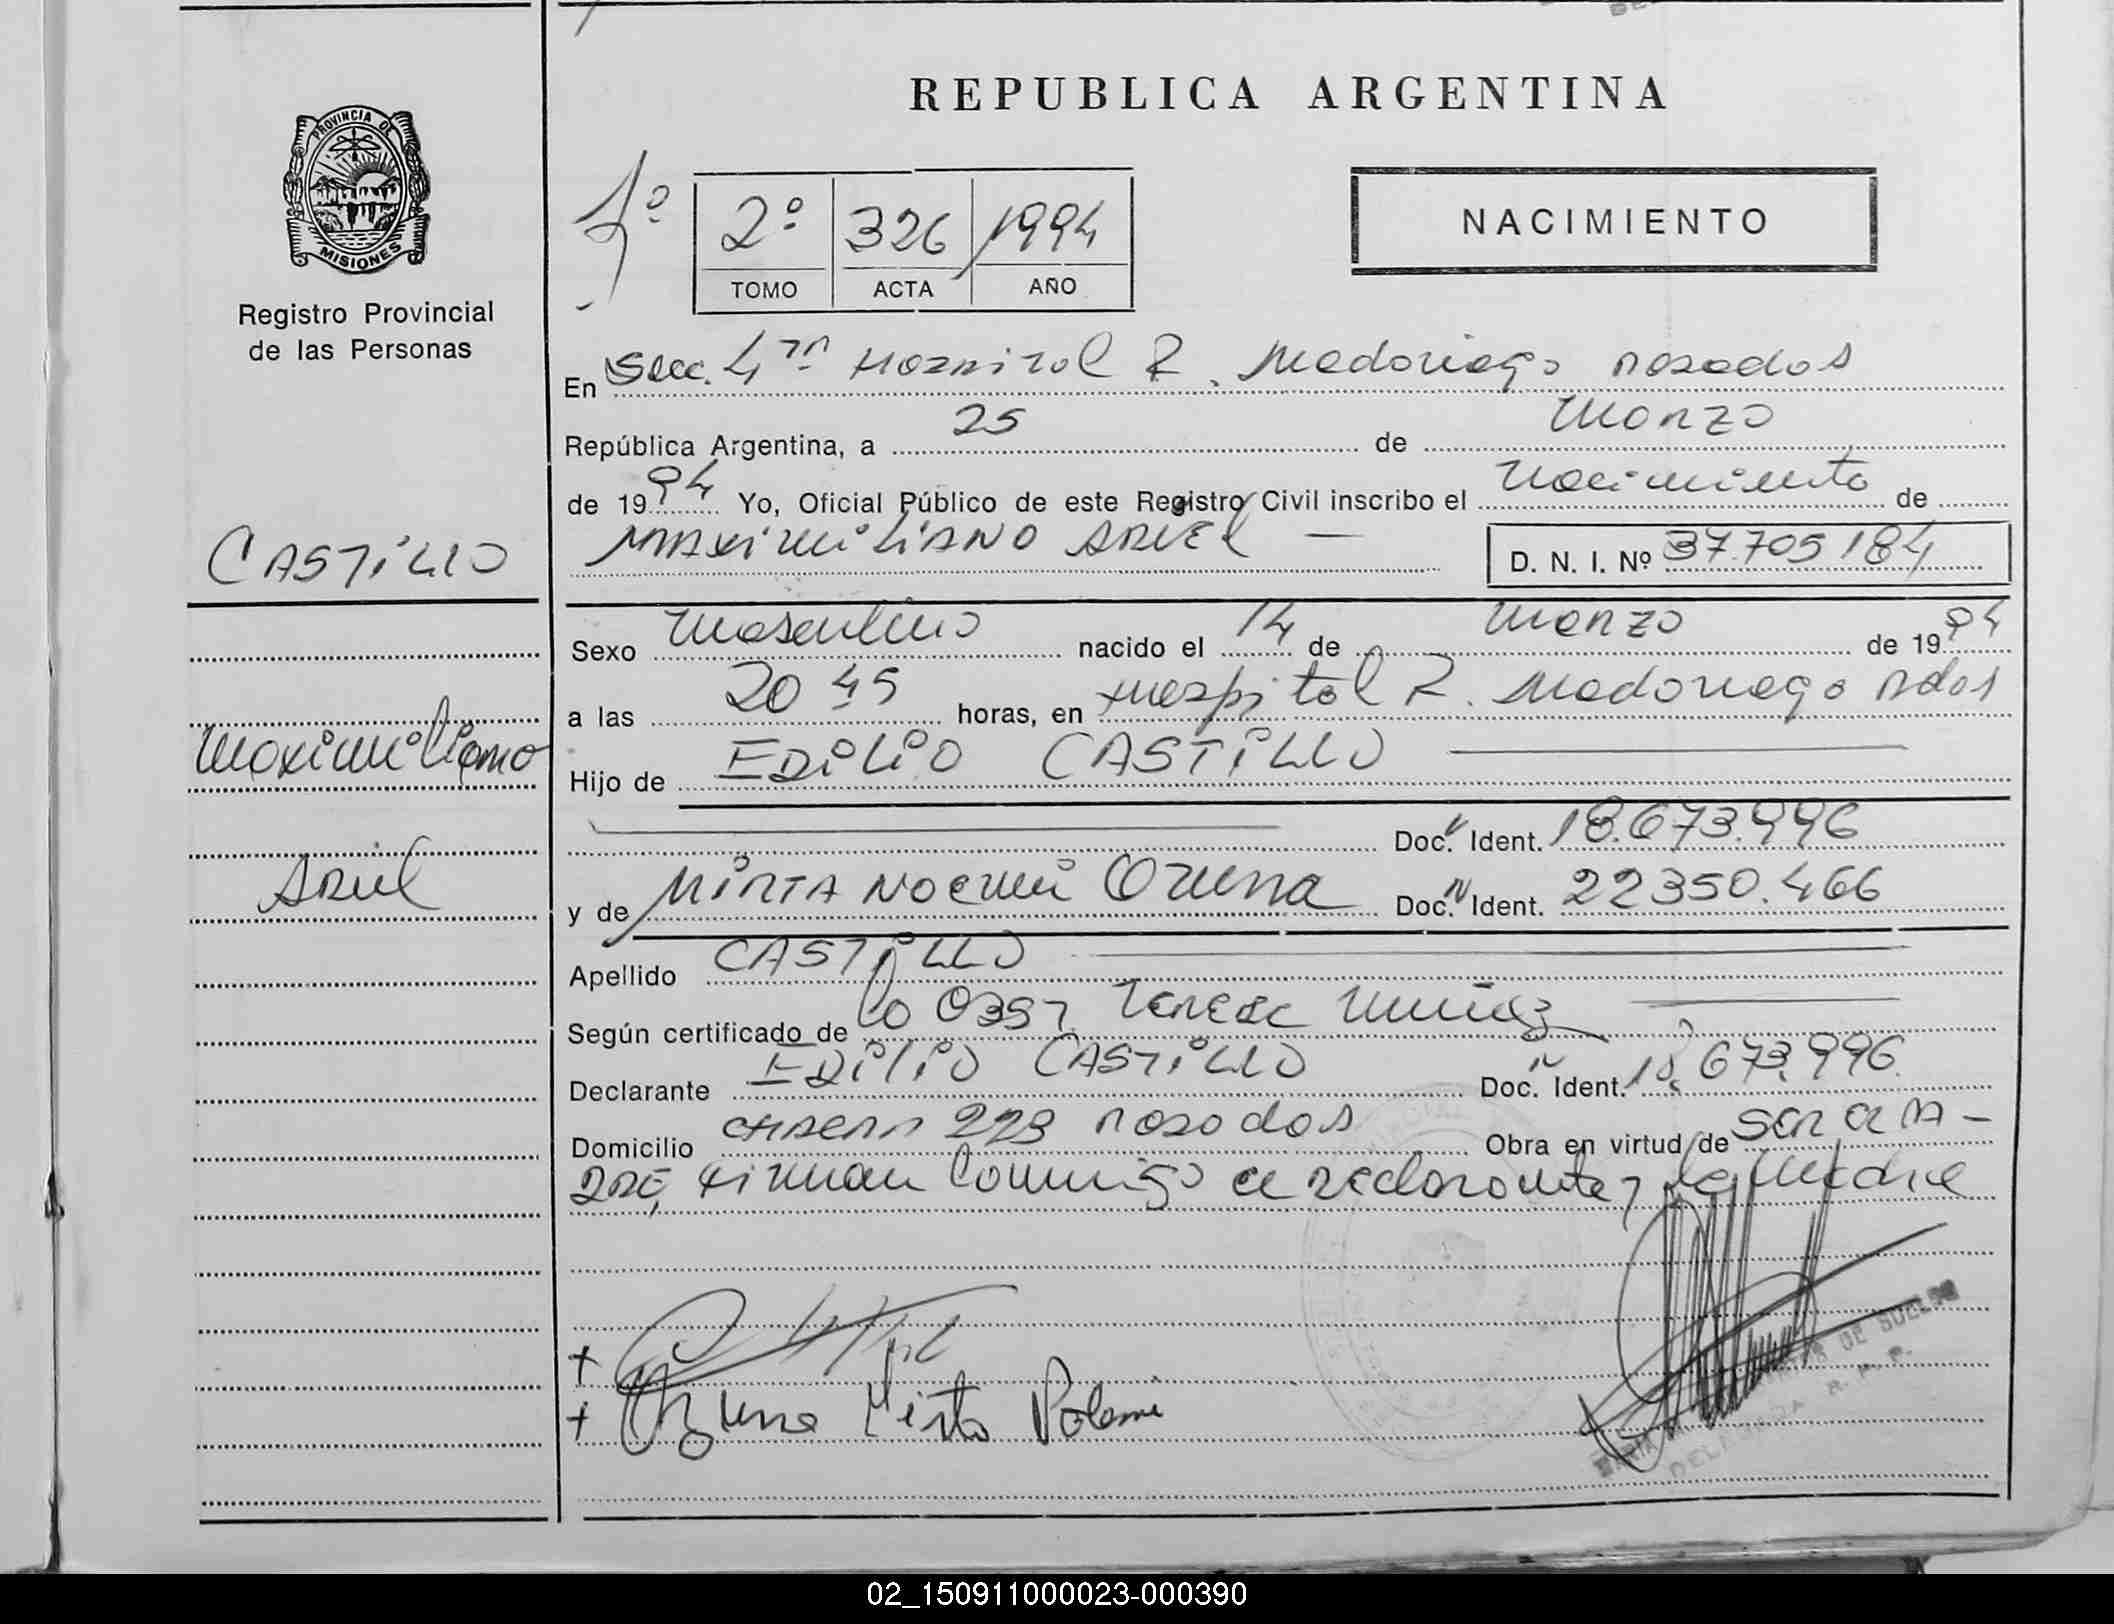 REPUBLICA ARGENTINA
PROVINCIA DE
MISIONES
Registro Provincial
de las Personas
2º 326 1994
TOMO ACTA AÑO
NACIMIENTO
En Secc. 4ta Hospital R. Madariaga Posadas
República Argentina, a 25 de Marzo
de 1994 Yo, Oficial Público de este Registro Civil inscribo el Nacimiento de
CASTILLO
MAXIMILIANO ARIEL —
D. N. I. Nº 37.705184
Sexo Masculino nacido el 14 de Marzo de 1994
a las 20 45 horas, en Hospital R. Madariaga Pdas
Maximiliano
Hijo de EDILIO CASTILLO
Doc. Ident. 18.673.996
Ariel
y de MIRTA NOEMI Ozuna Doc. Ident. 22350.466
Apellido CASTILLO
Según certificado de la Obst Teresa Muñoz
Declarante EDILIO CASTILLO Doc. Ident. 18.673.996
Domicilio 223 Posadas Obra en virtud de ser el PA-
DRE, Firman Conmigo el declarante y la Madre
+
+ Ozuna Mirta Noemi
DE
DELEGADA R. P. P.
02_150911000023-000390